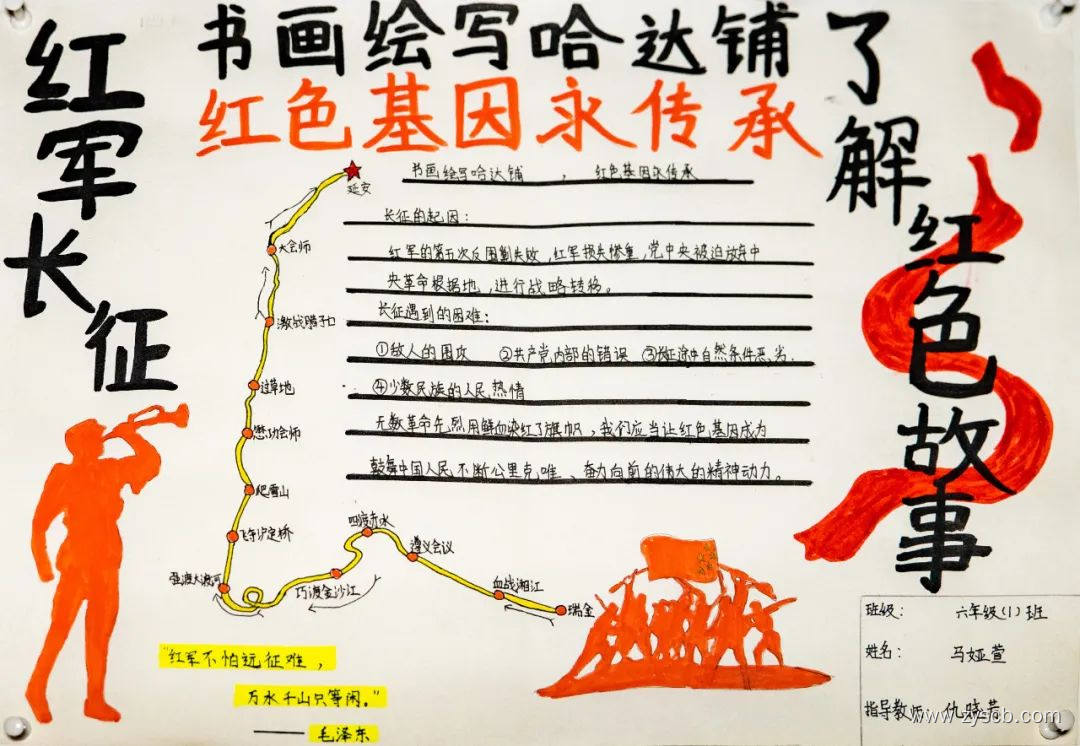 书画绘写哈达铺
红色基因永传承
红军长征
了解红色故事
书画绘写哈达铺，红色基因永传承
长征的起因：
红军的第五次反围剿失败，红军损失惨重，党中央被迫放弃中
央革命根据地，进行战略转移。
长征遇到的困难：
①敌人的围攻 ②共产党内部的错误 ③长征途中自然条件恶劣.
④少数民族的人民热情
无数革命先烈用鲜血染红了旗帜，我们应当让红色基因成为
鼓舞中国人民不断公里克唯、奋力向前的伟大的精神动力。
延安
大会师
激战腊子口
过草地
懋功会师
爬雪山
飞夺泸定桥
强渡大渡河
巧渡金沙江
四渡赤水
遵义会议
血战湘江
瑞金
"红军不怕远征难，
万水千山只等闲。"
——毛泽东
班级： 六年级(1)班
姓名： 马娅萱
指导教师 仇晓芳
www.zyscb.com